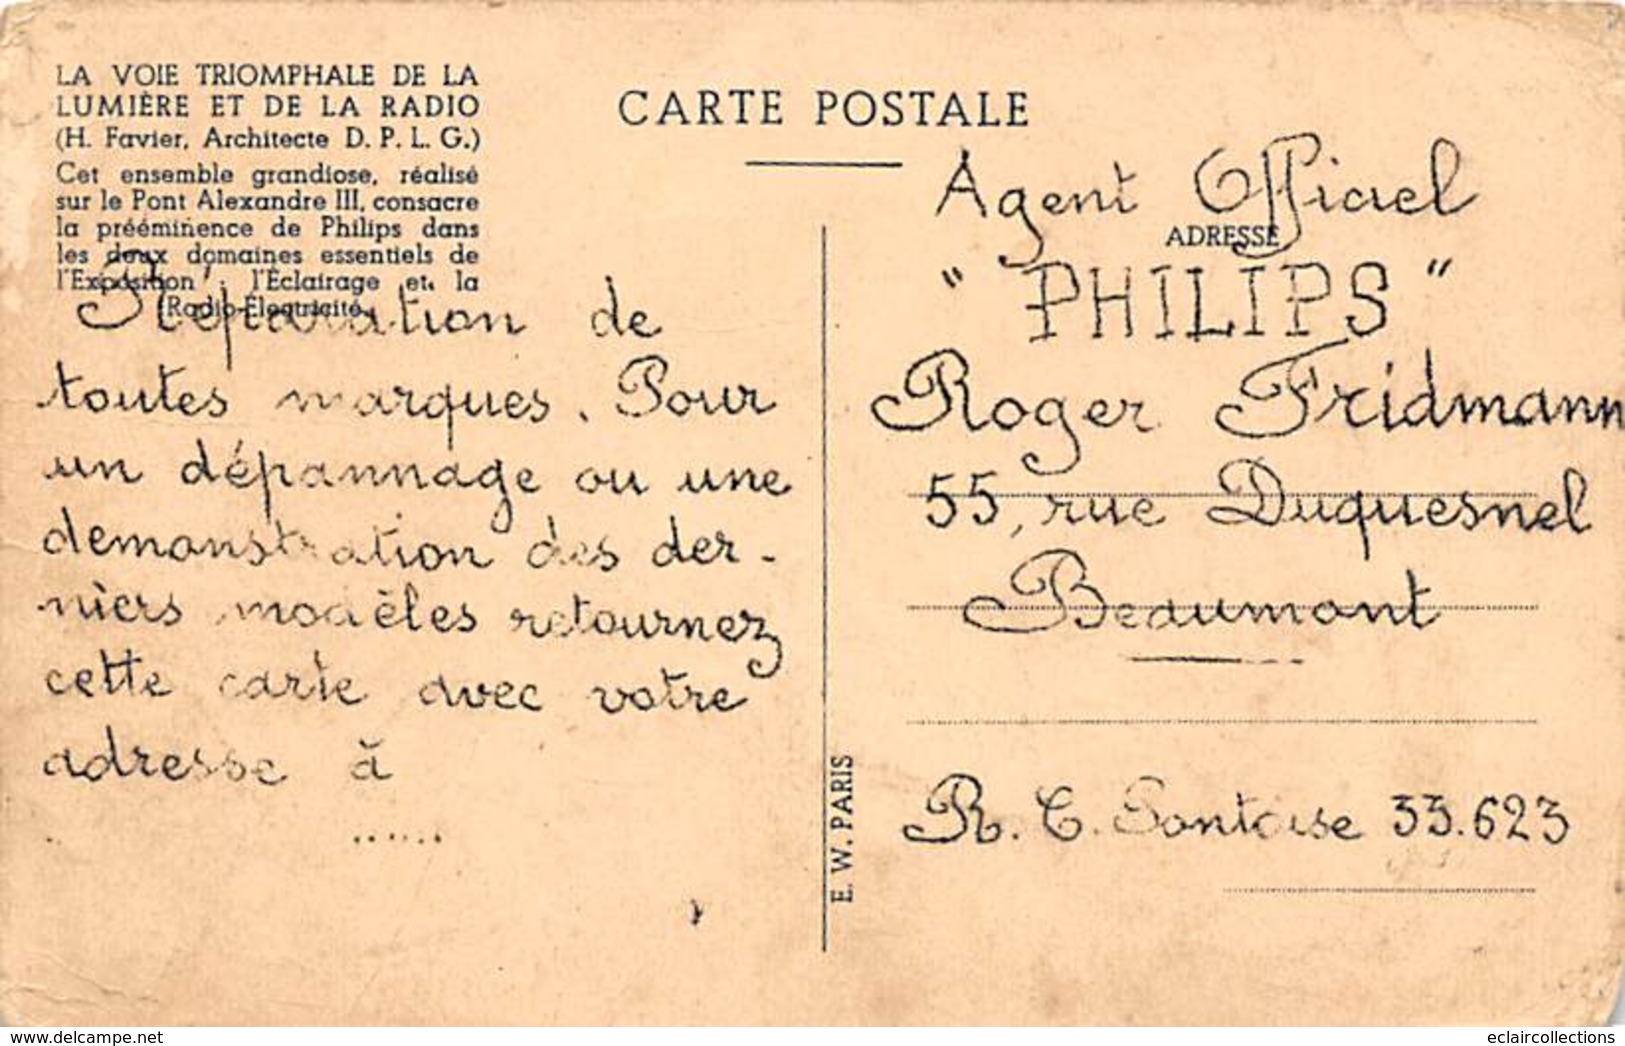 LA VOIE TRIOMPHALE DE LA
LUMIÈRE ET DE LA RADIO
(H. Favier, Architecte D. P. L. G.)
Cet ensemble grandiose, réalisé
sur le Pont Alexandre III, consacre
la prééminence de Philips dans
les deux domaines essentiels de
l'Exposition : l'Éclairage et la
Radio-Électricité.
Réparation de
toutes marques. Pour
un dépannage ou une
demonstration des der-
niers modèles retournez
cette carte avec votre
adresse à
......
CARTE POSTALE
Agent Officiel
ADRESSE
"PHILIPS"
Roger Fridmann
55, rue Duquesnel
Beaumont
R. C. Pontoise 33.623
E. W. PARIS
www.delcampe.net
eclaircollections